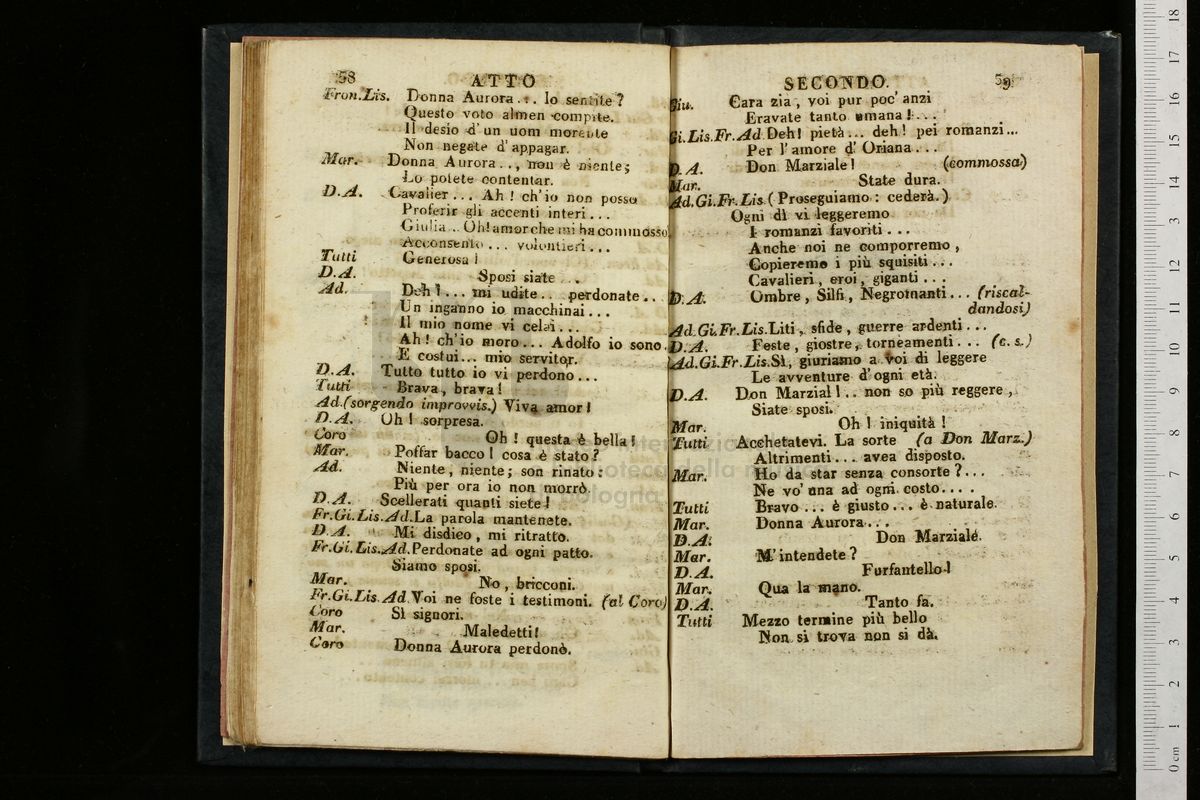 58 ATTO
Fron. Lis. Donna Aurora... lo sentite?
Questo voto almen compite.
Il desio d'un uom morente
Non negate d'appagar.
Mar. Donna Aurora.., non è niente;
Lo potete contentar.
D.A. Cavalier... Ah! ch'io non posso
Proferir gli accenti interi...
Giulia.. Oh! amor che mi ha commosso
Acconsento... volontieri...
Tutti Generosa!
D.A. Sposi siate...
Ad. Deh!... mi udite.. perdonate...
Un inganno io macchinai...
Il mio nome vi celai...
Ah! ch'io moro... Adolfo io sono.
E costui... mio servitor.
D.A. Tutto tutto io vi perdono...
Tutti Brava, brava!
Ad. (sorgendo improvvis.) Viva amor!
D.A. Oh! sorpresa.
Coro Oh! questa è bella!
Mar. Poffar bacco! cosa è stato?
Ad. Niente, niente; son rinato:
Più per ora io non morrò
D.A. Scellerati quanti siete!
Fr. Gi. Lis. Ad. La parola mantenete.
D.A. Mi disdico, mi ritratto.
Fr. Gi. Lis. Ad. Perdonate ad ogni patto.
Siamo sposi.
Mar. No, bricconi.
Fr. Gi. Lis. Ad. Voi ne foste i testimoni. (al Coro)
Coro Sì signori.
Mar. Maledetti!
Coro Donna Aurora perdonò.
SECONDO. 59
Giu. Cara zia, voi pur poc'anzi
Eravate tanto umana!...
Gi. Lis. Fr. Ad. Deh! pietà... deh! pei romanzi...
Per l'amore d'Oriana...
D.A. Don Marziale! (commossa)
Mar. State dura.
Ad. Gi. Fr. Lis. (Proseguiamo: cederà.)
Ogni dì vi leggeremo
I romanzi favoriti...
Anche noi ne comporremo,
Copieremo i più squisiti...
Cavalieri, eroi, giganti...
D.A. Ombre, Silfi, Negromanti... (riscal-
dandosi)
Ad. Gi. Fr. Lis. Liti, sfide, guerre ardenti...
D.A. Feste, giostre, torneamenti... (c. s.)
Ad. Gi. Fr. Lis. Sì, giuriamo a voi di leggere
Le avventure d'ogni età.
D.A. Don Marzial!.. non so più reggere,
Siate sposi.
Mar. Oh! iniquità!
Tutti Acchetatevi. La sorte (a Don Marz.)
Altrimenti... avea disposto.
Mar. Ho da star senza consorte?...
Ne vo' una ad ogni costo....
Tutti Bravo... è giusto... è naturale.
Mar. Donna Aurora...
D.A. Don Marziale.
Mar. M'intendete?
D.A. Furfantello!
Mar. Qua la mano.
D.A. Tanto fa.
Tutti Mezzo termine più bello
Non si trova non si dà.